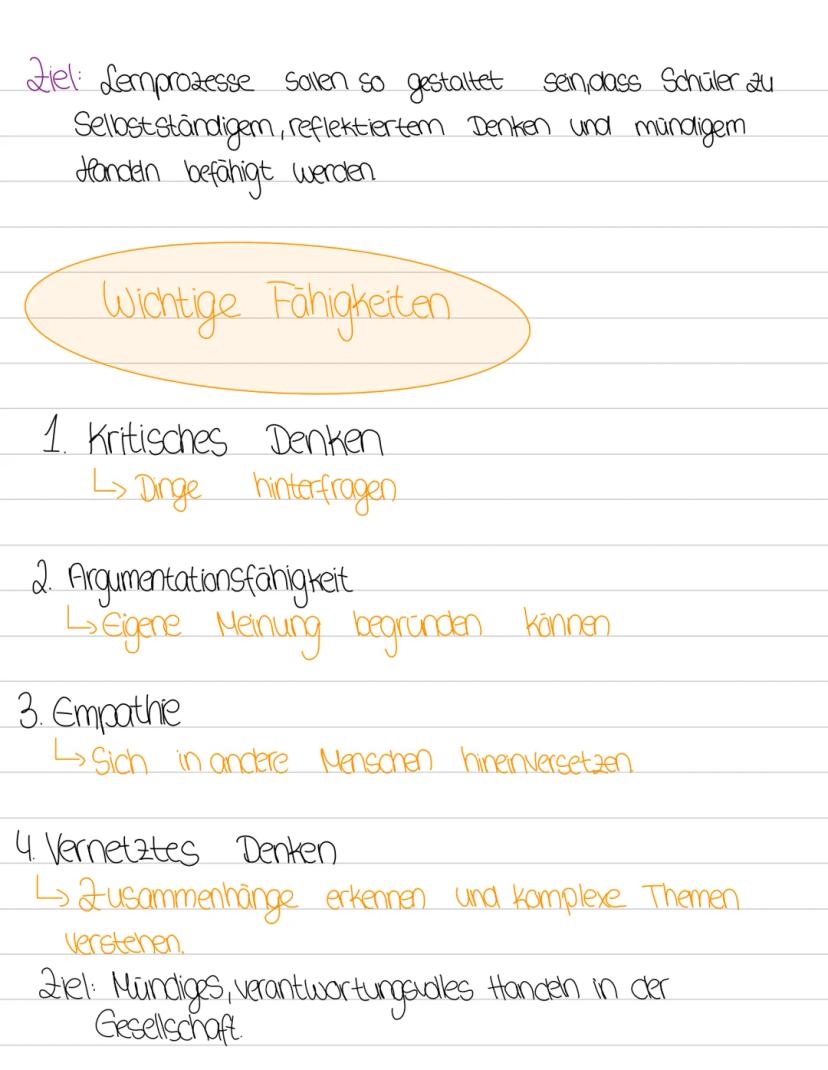 Ziel: Lernprozesse sollen so gestaltet sein, dass Schüler zu
Selbstständigem, reflektiertem Denken und mündigem
Handeln befähigt werden
Wichtige Fähigkeiten
1. Kritisches Denken
↳ Dinge hinterfragen
2. Argumentationsfähigkeit
↳ Eigene Meinung begründen können
3. Empathie
↳ Sich in andere Menschen hineinversetzen
4. Vernetztes Denken
↳ Zusammenhänge erkennen und komplexe Themen
verstehen.
Ziel: Mündiges, verantwortungsvolles Handeln in der
Gesellschaft.